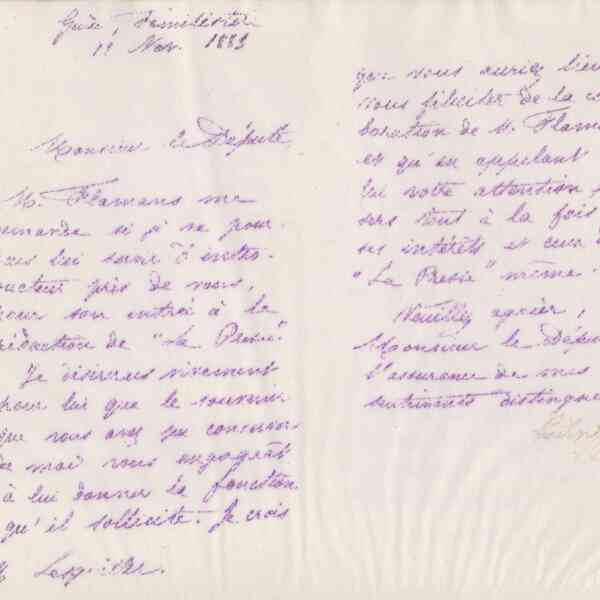 Guise, Familistère
19 Nov. 1883
Monsieur le Député,
M. Flamans me
demande si je ne pour-
rais lui servir d'intro-
ducteur près de vous,
pour son entrée à la
rédaction de "La Presse".
Je désirerais vivement
pour lui que le souvenir
que vous avez pu conserver
de moi vous engageât
à lui donner la fonction
qu'il sollicite. Je crois
que vous auriez lieu
vous féliciter de la co
boration de M. Flama
et qu'en appelant
lui votre attention
sers tout à la fois
ses intérêts et ceux
"La Presse" même.
Veuillez agréer,
Monsieur le Dépu
l'assurance de mes
sentiments distingué